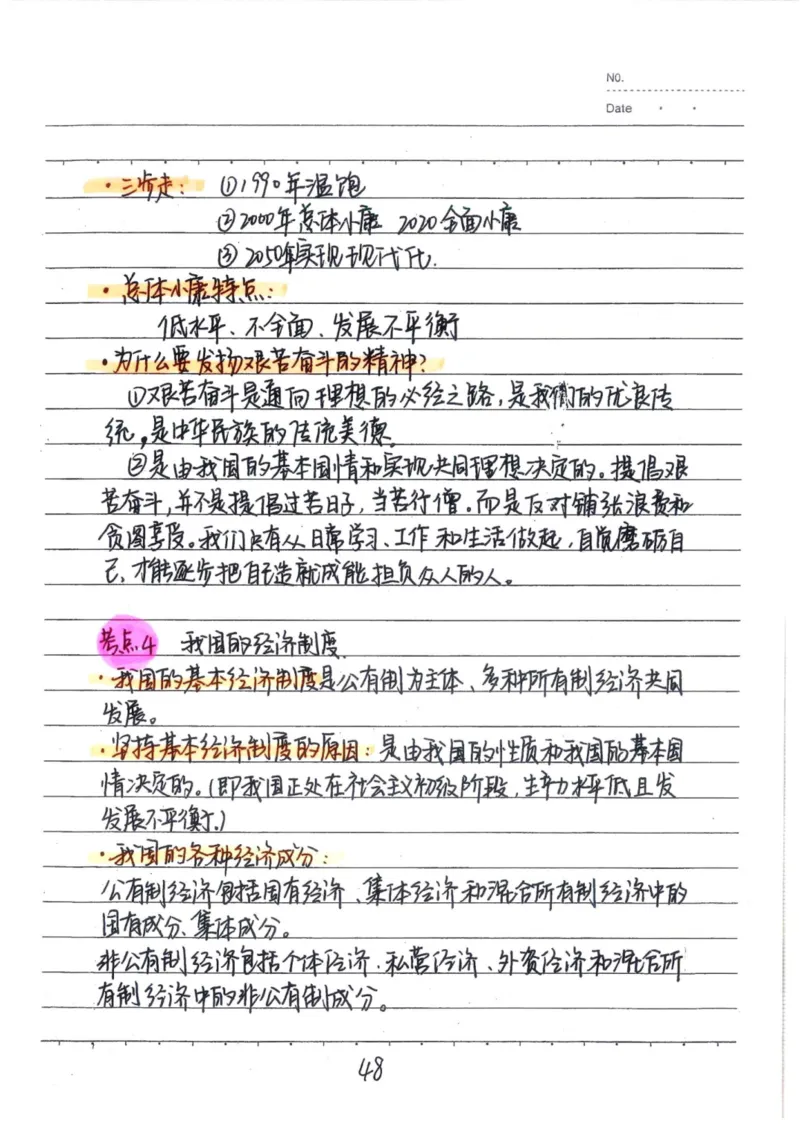 NO.
Date
·三步走：①1990年温饱
②2000年总体小康 2020全面小康
③2050年实现现代化.
·总体小康特点：
低水平、不全面、发展不平衡
·为什么要发扬艰苦奋斗的精神？
①艰苦奋斗是通向理想的必经之路，是我们的优良传
统，是中华民族的传统美德.
②是由我国的基本国情和实现共同理想决定的。提倡艰
苦奋斗，并不是提倡过苦日子，当苦行僧.而是反对铺张浪费和
贪图享受。我们只有从日常学习、工作和生活做起，自觉磨砺自
己，才能逐步把自己造就成能担负众人的人。
考点4 我国的经济制度
·我国的基本经济制度是公有制为主体、多种所有制经济共同
发展。
·坚持基本经济制度的原因：是由我国的性质和我国的基本国
情决定的。(即我国正处在社会主义初级阶段，生产力水平低且发
发展不平衡.)
·我国的各种经济成分：
公有制经济包括国有经济、集体经济和混合所有制经济中的
国有成分、集体成分。
非公有制经济包括个体经济、私营经济、外资经济和混合所
有制经济中的非公有制成分。
48